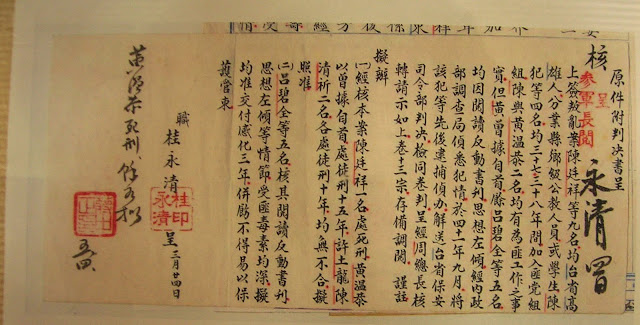 原件附判決書呈
呈
參軍長閱
永清
核
上簽叛亂案陳廷祥等九名均台省高
雄人分業縣鄉級公教人員或學生陳
犯等四名均三七三十八年間加入匪黨組
組陳與黃溫恭二名均有為匪工作之事
實但黃曾據自首餘呂碧全等五名
均因閱讀反動書刊思想左傾經內政
部調查局偵悉犯情於四十一年九月將
該犯等先後逮捕偵辦解送台省保安
司令部判決檢同卷判呈經周總長核
轉請示如上卷十三宗存備調閱 謹註
擬辦
㈠經核本案陳廷祥一名處死刑黃溫恭
以曾據自首處徒刑十五年許土龍陳
清祈二名各處徒刑十年均無不合擬
照准
㈡呂碧全等五名核其閱讀反動書刊
思想左傾等情節受匪毒素均深擬
均准交付感化三年併勵不得易以保
護管束
職 桂永清 呈 三月廿四日
桂永清印
黃溫恭死刑餘如擬